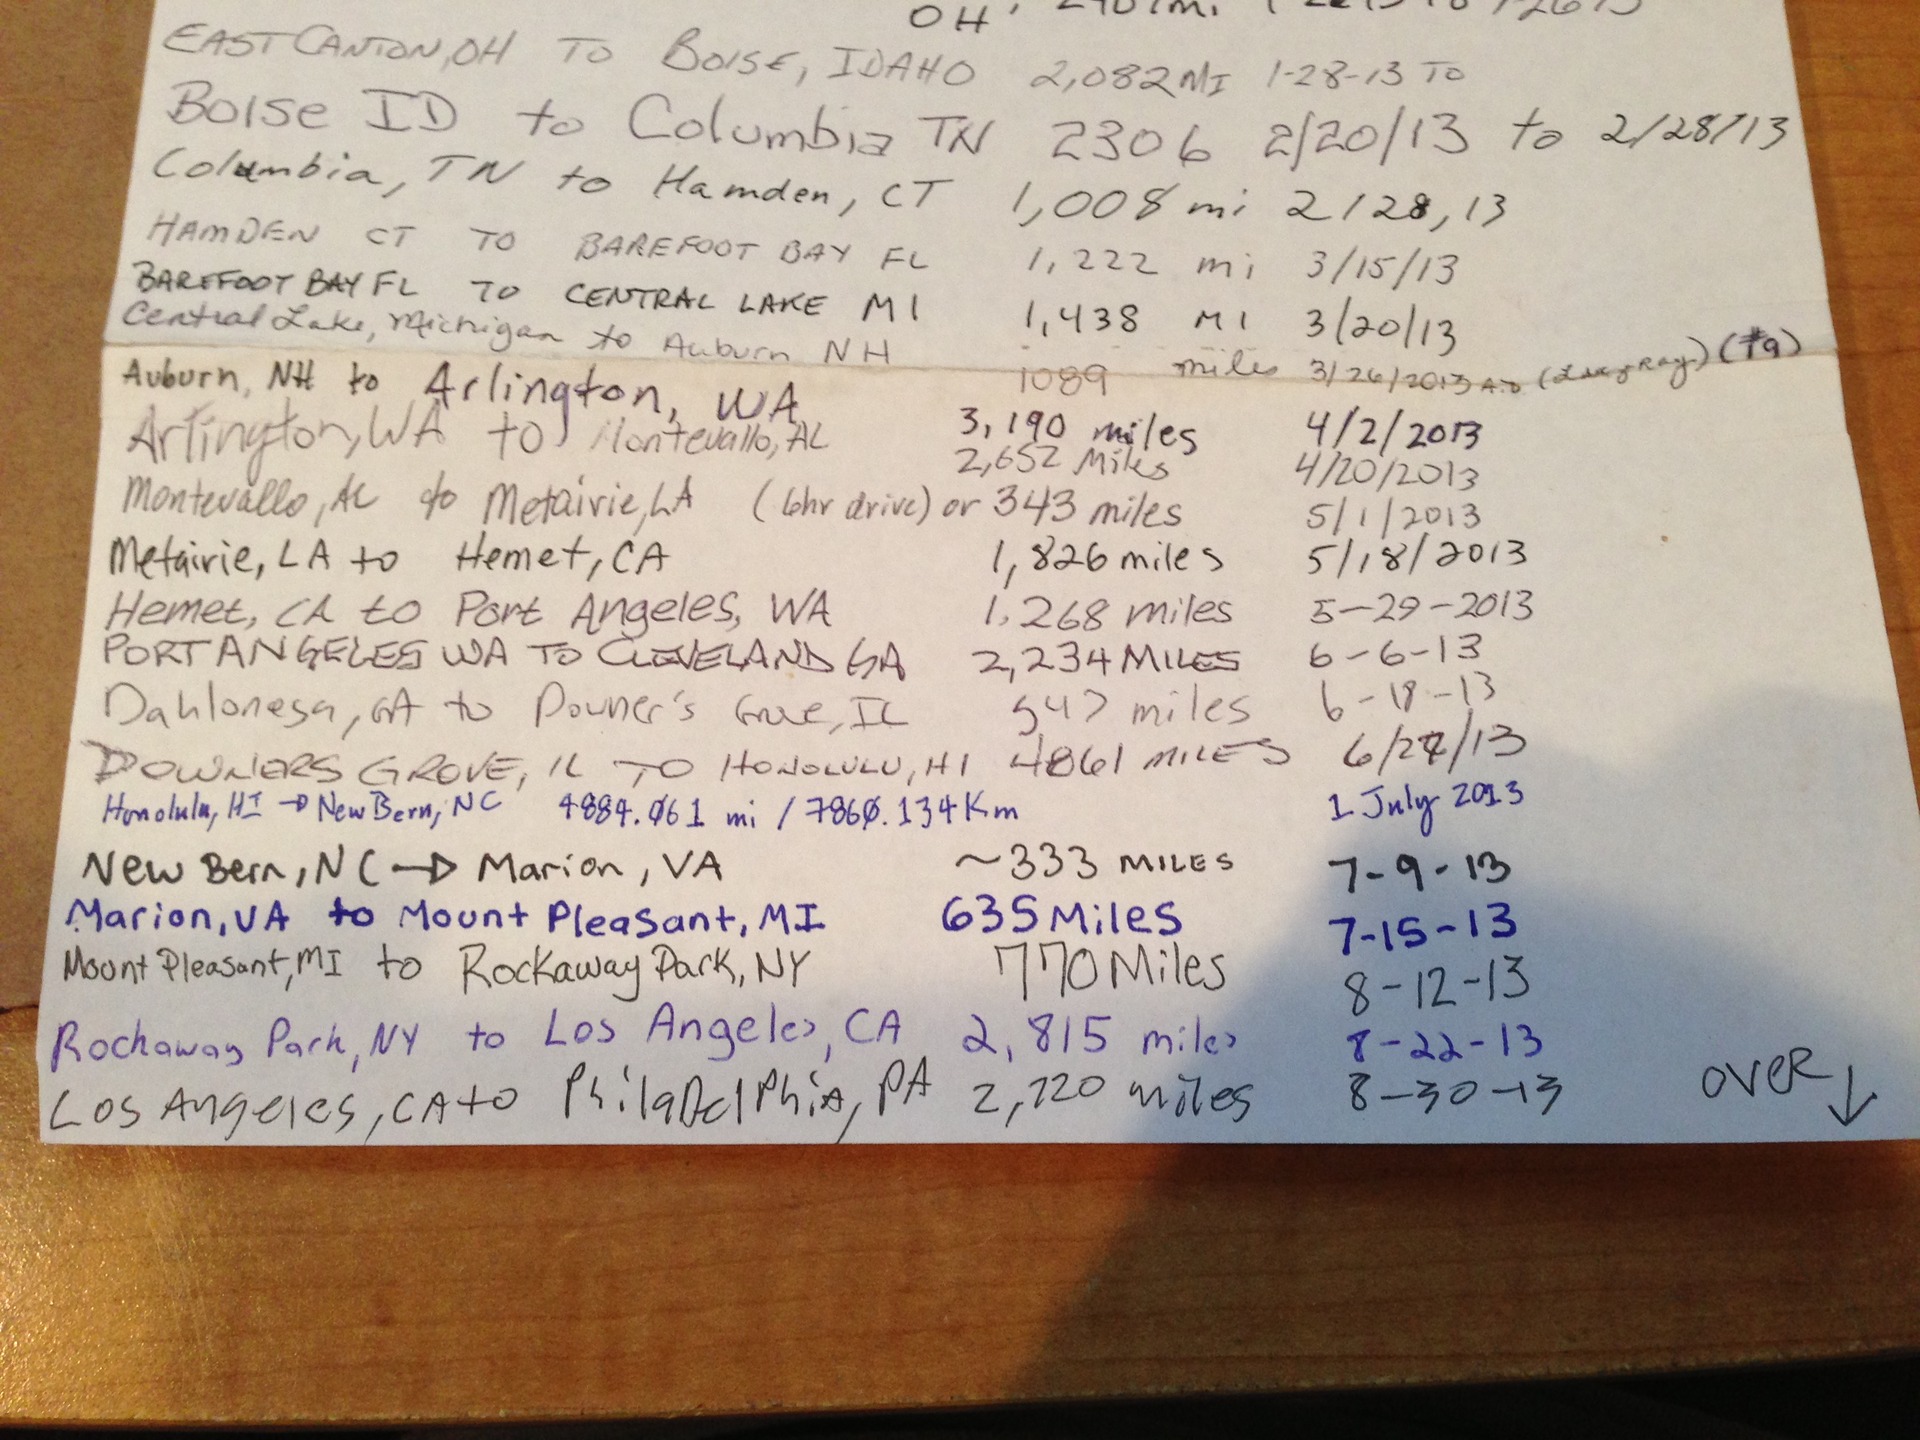 OH
EAST CANTON, OH TO BOISE, IDAHO 2,082 MI 1-28-13 TO
Boise ID to Columbia TN 2306 2/20/13 to 2/28/13
Columbia, TN to Hamden, CT 1,008 mi 2/28,13
HAMDEN CT TO BAREFOOT BAY FL 1,222 mi 3/15/13
BAREFOOT BAY FL TO CENTRAL LAKE MI 1,438 MI 3/20/13
Central Lake, Michigan to Auburn NH 1089 miles 3/26/2013 A.D (#9)
Auburn, NH to Arlington, WA 3,190 miles 4/2/2013
Arlington, WA to Montevallo, AL 2,652 Miles 4/20/2013
Montevallo, AL to Metairie, LA (6hr drive) or 343 miles 5/1/2013
Metairie, LA to Hemet, CA 1,826 miles 5/18/2013
Hemet, CA to Port Angeles, WA 1,268 miles 5-29-2013
PORT ANGELES WA TO CLEVELAND GA 2,234 MILES 6-6-13
Dahlonega, GA to Downer's Grove, IL 547 miles 6-18-13
DOWNERS GROVE, IL TO HONOLULU, HI 4861 MILES 6/27/13
Honolulu, HI → New Bern, NC 4884.061 mi / 7860.134 Km 1 July 2013
New Bern, NC → Marion, VA ~333 MILES 7-9-13
Marion, VA to Mount Pleasant, MI 635 Miles 7-15-13
Mount Pleasant, MI to Rockaway Park, NY 770 Miles 8-12-13
Rockaway Park, NY to Los Angeles, CA 2,815 miles 8-22-13
Los Angeles, CA to PhilaDelPhia, PA 2,720 miles 8-30-13
OVER ↓